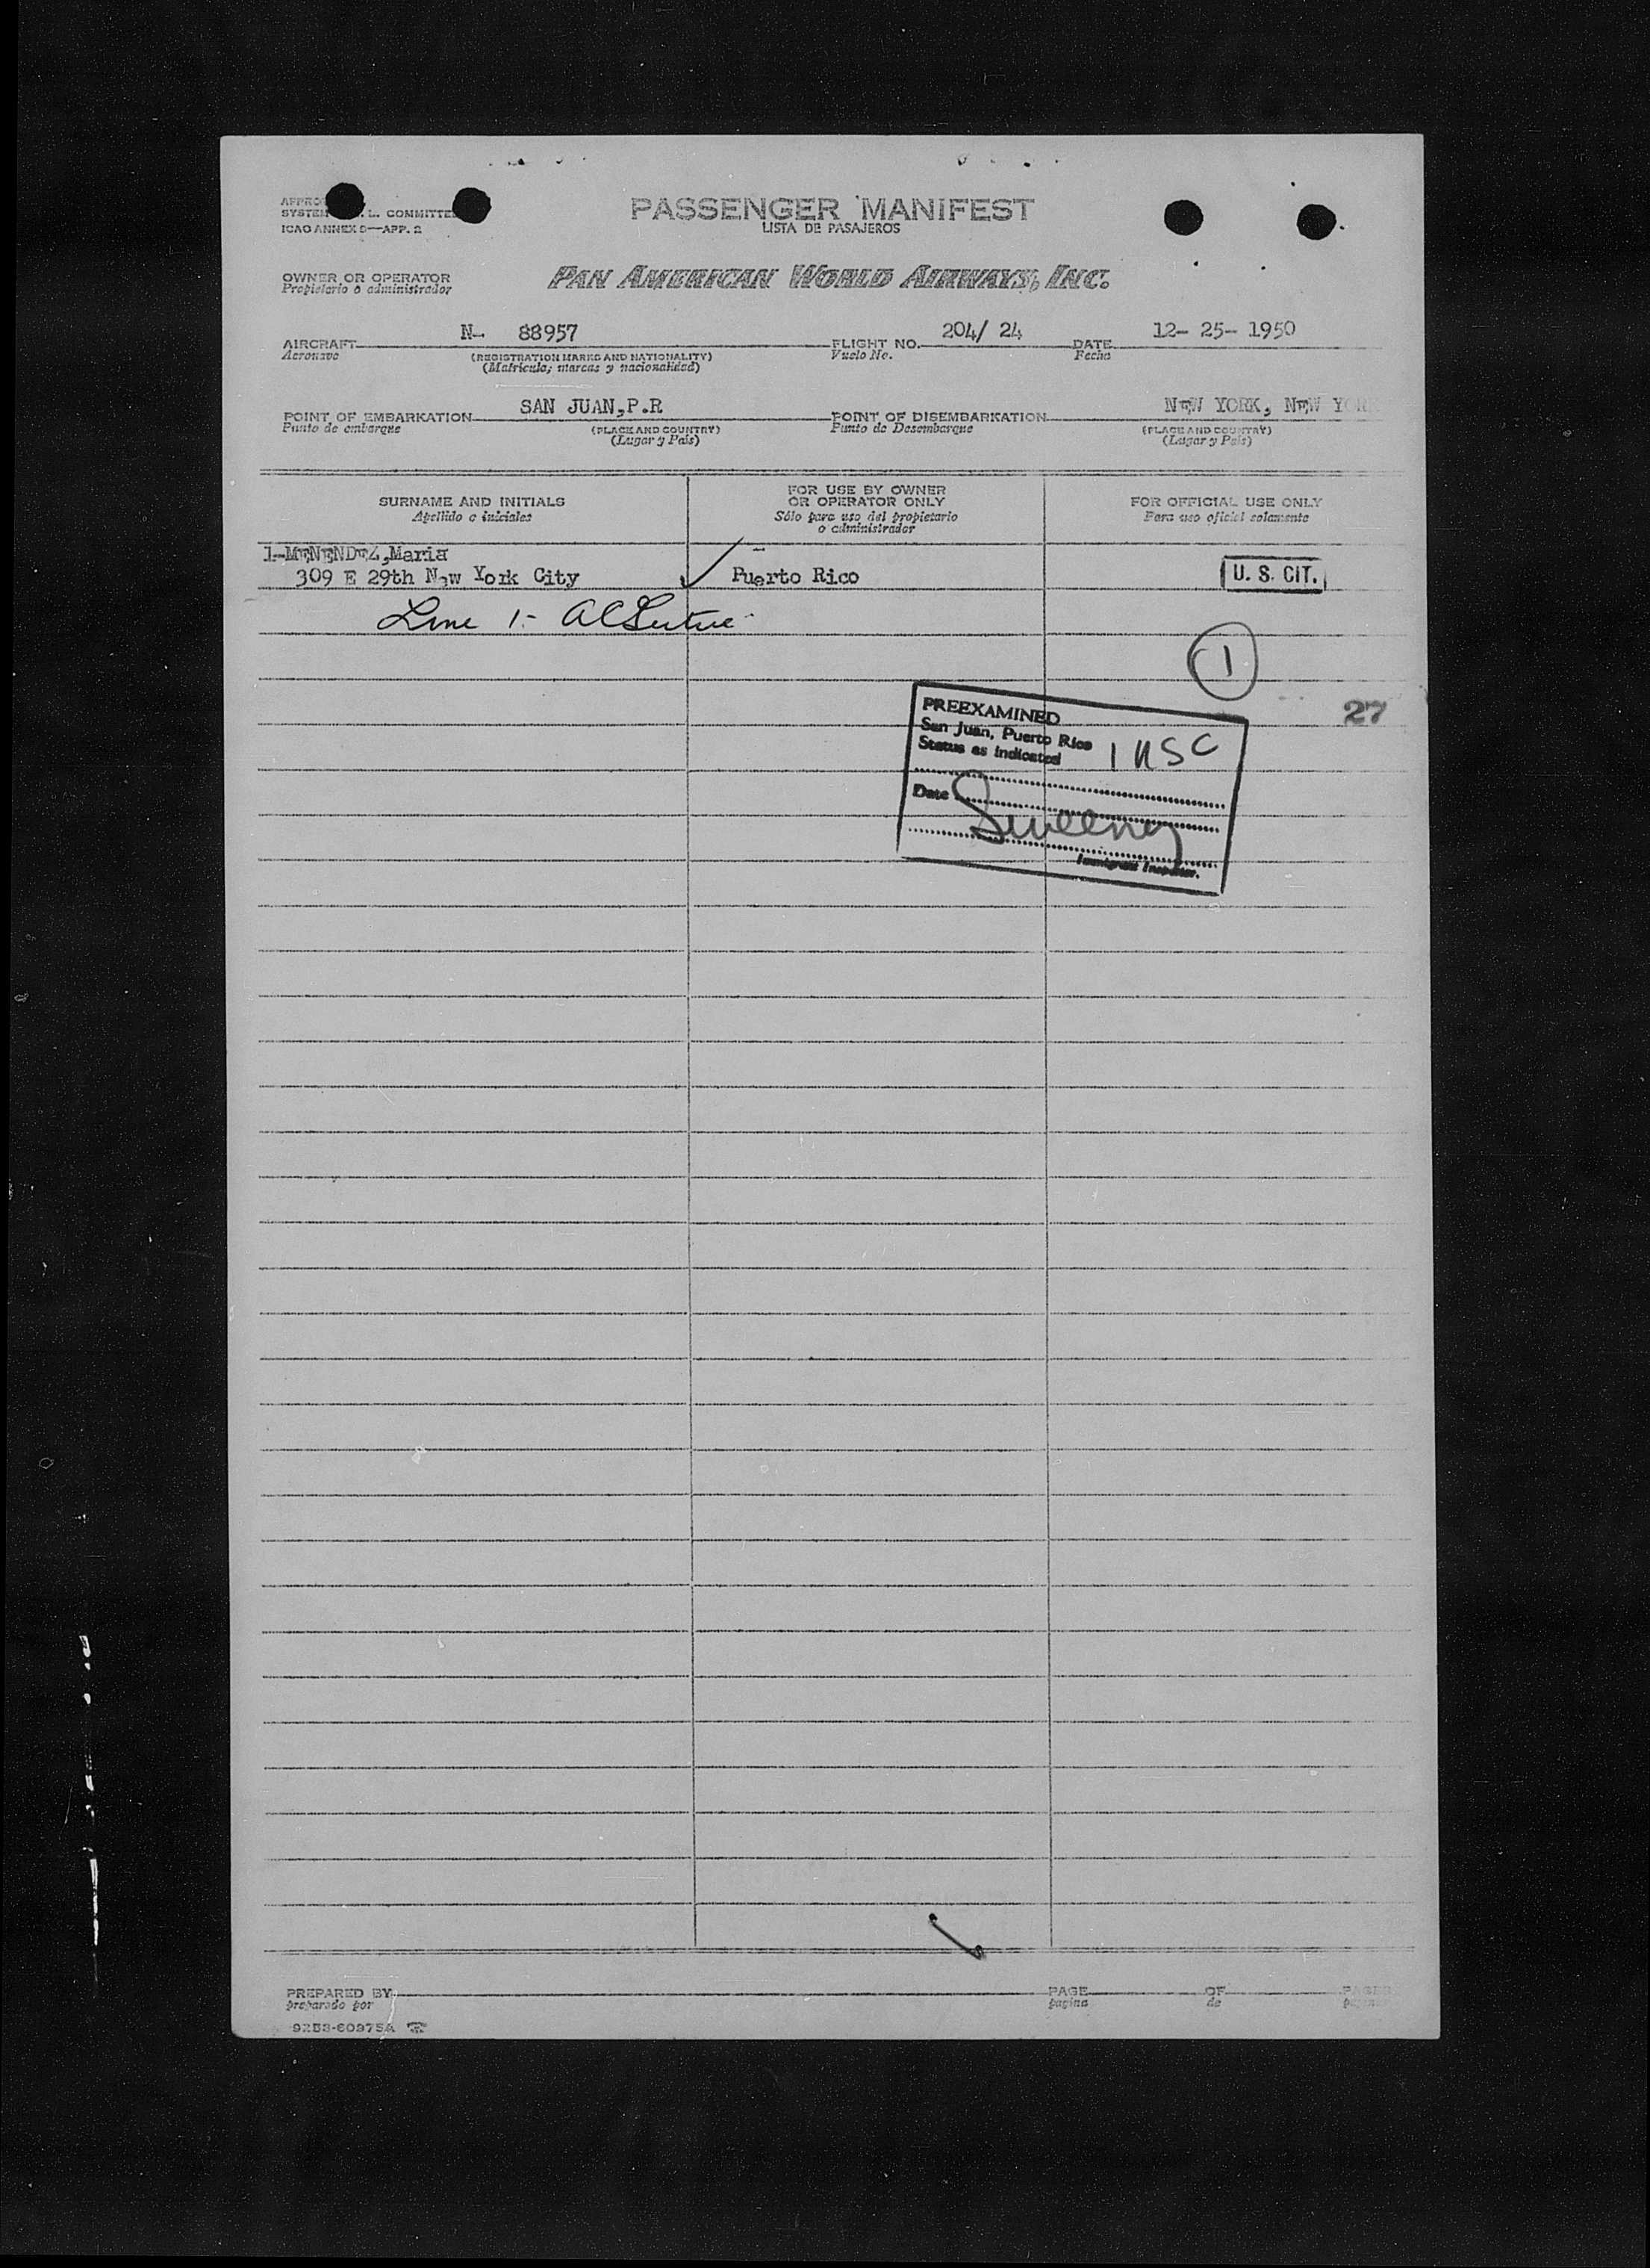 PASSENGER MANIFEST
LISTA DE PASAJEROS
SYSTEM L. COMMITTEE
ICAO ANNEX 9—APP. 2
OWNER OR OPERATOR
Propietario o administrador
PAN AMERICAN WORLD AIRWAYS, INC.
AIRCRAFT N- 88957 FLIGHT NO. 204/ 24 DATE 12- 25- 1950
Aeronave (REGISTRATION MARKS AND NATIONALITY) Vuelo No. Fecha
(Matricula, marcas y nacionalidad)
POINT OF EMBARKATION SAN JUAN,P.R POINT OF DISEMBARKATION NEW YORK, NEW YORK
Punto de embarque (PLACE AND COUNTRY) Punto de Desembarque (PLACE AND COUNTRY)
(Lugar y Pais) (Lugar y Pais)
SURNAME AND INITIALS
Apellido e iniciales
FOR USE BY OWNER
OR OPERATOR ONLY
Sólo para uso del propietario
o administrador
FOR OFFICIAL USE ONLY
Para uso oficial solamente
1-MENENDEZ,Maria
309 E 29th New York City Puerto Rico U. S. CIT.
Line 1-
1
27
PREEXAMINED
San Juan, Puerto Rico
Status as indicated 1 USC
Date
Sweeney
Immigrant Inspector.
PREPARED BY PAGE OF PAGES
preparado por pagina de
9253-60975A